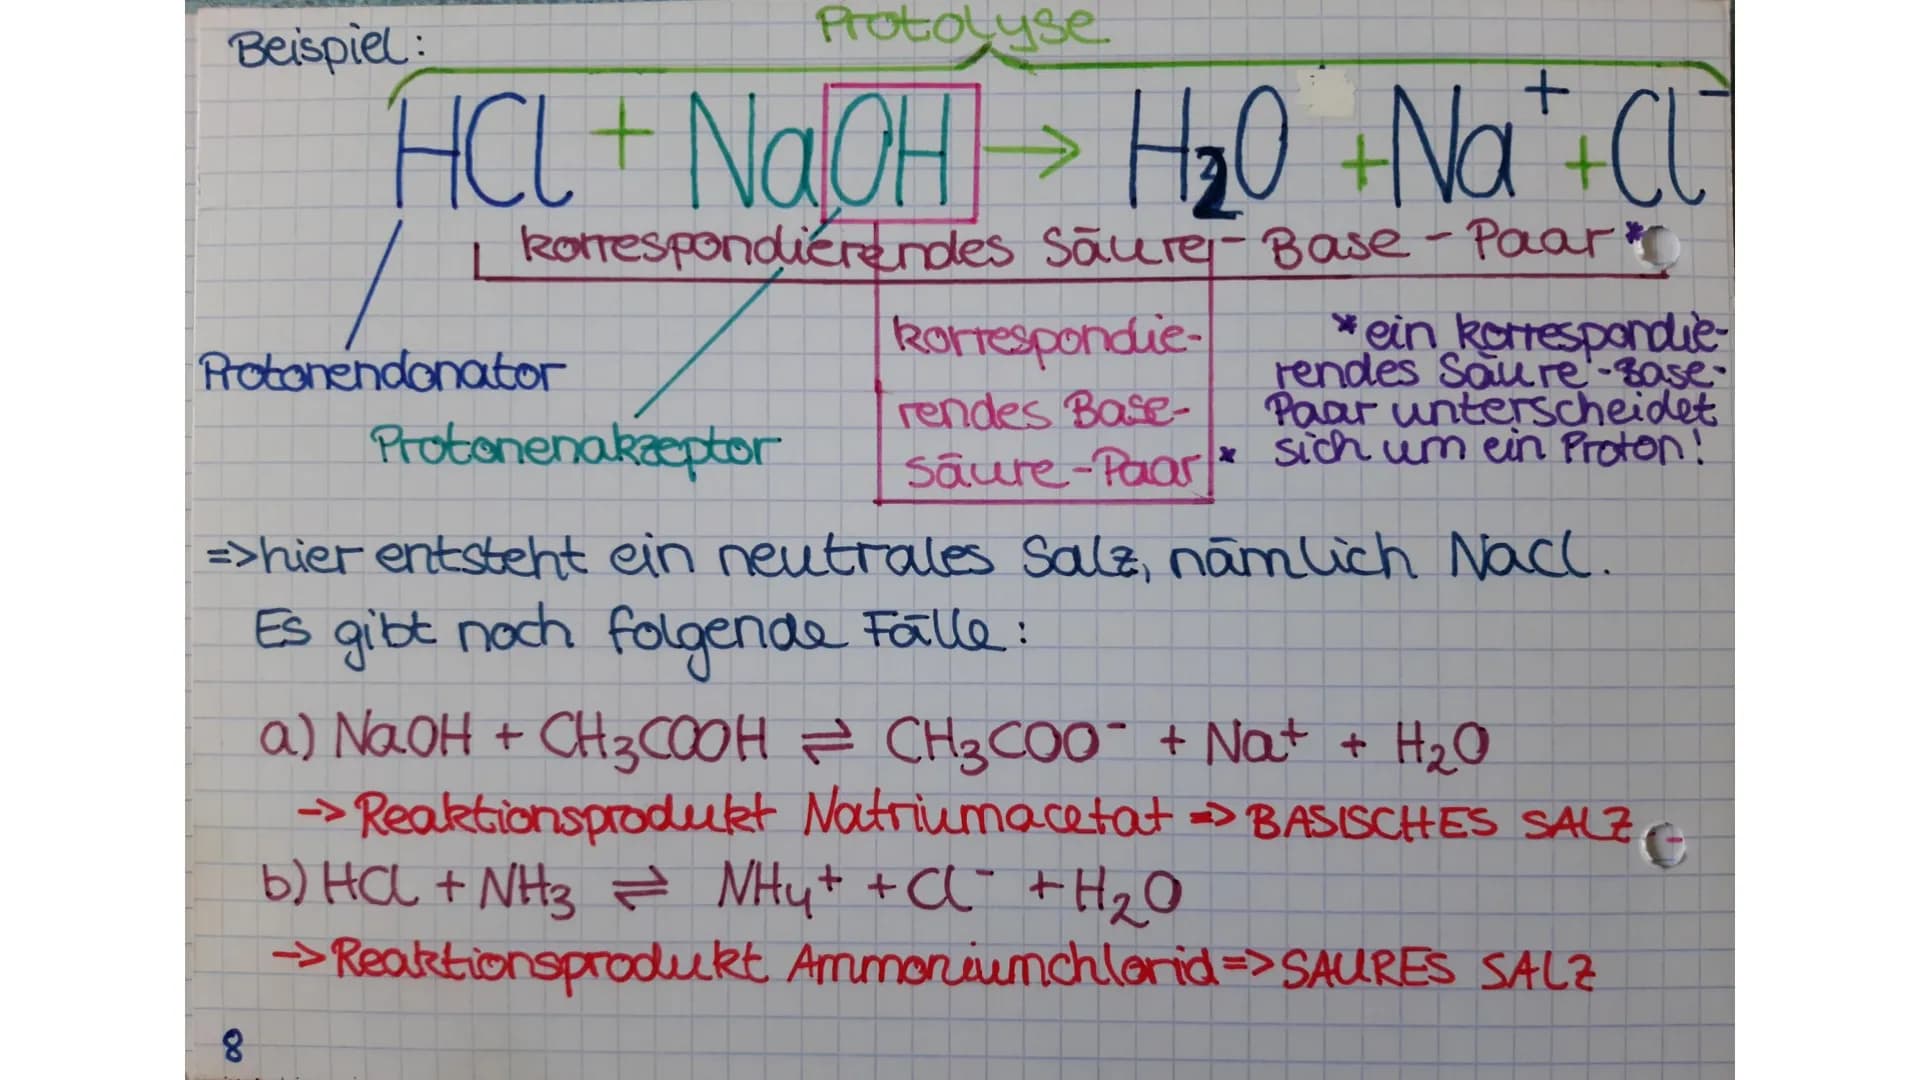 Beispiel:
Protolyse
HCl + NaOH → H₂O + Na⁺ + Cl⁻
korrespondierendes Säure-Base-Paar*
Protonendonator
Protonenakzeptor
korrespondie-
rendes Base-
Säure-Paar*
*ein korrespondie-
rendes Säure-Base-
Paar unterscheidet
sich um ein Proton!
=> hier entsteht ein neutrales Salz, nämlich NaCl.
Es gibt noch folgende Fälle:
a) NaOH + CH₃COOH ⇌ CH₃COO⁻ + Na⁺ + H₂O
-> Reaktionsprodukt Natriumacetat => BASISCHES SALZ
b) HCl + NH₃ ⇌ NH₄⁺ + Cl⁻ + H₂O
-> Reaktionsprodukt Ammoniumchlorid => SAURES SALZ
8